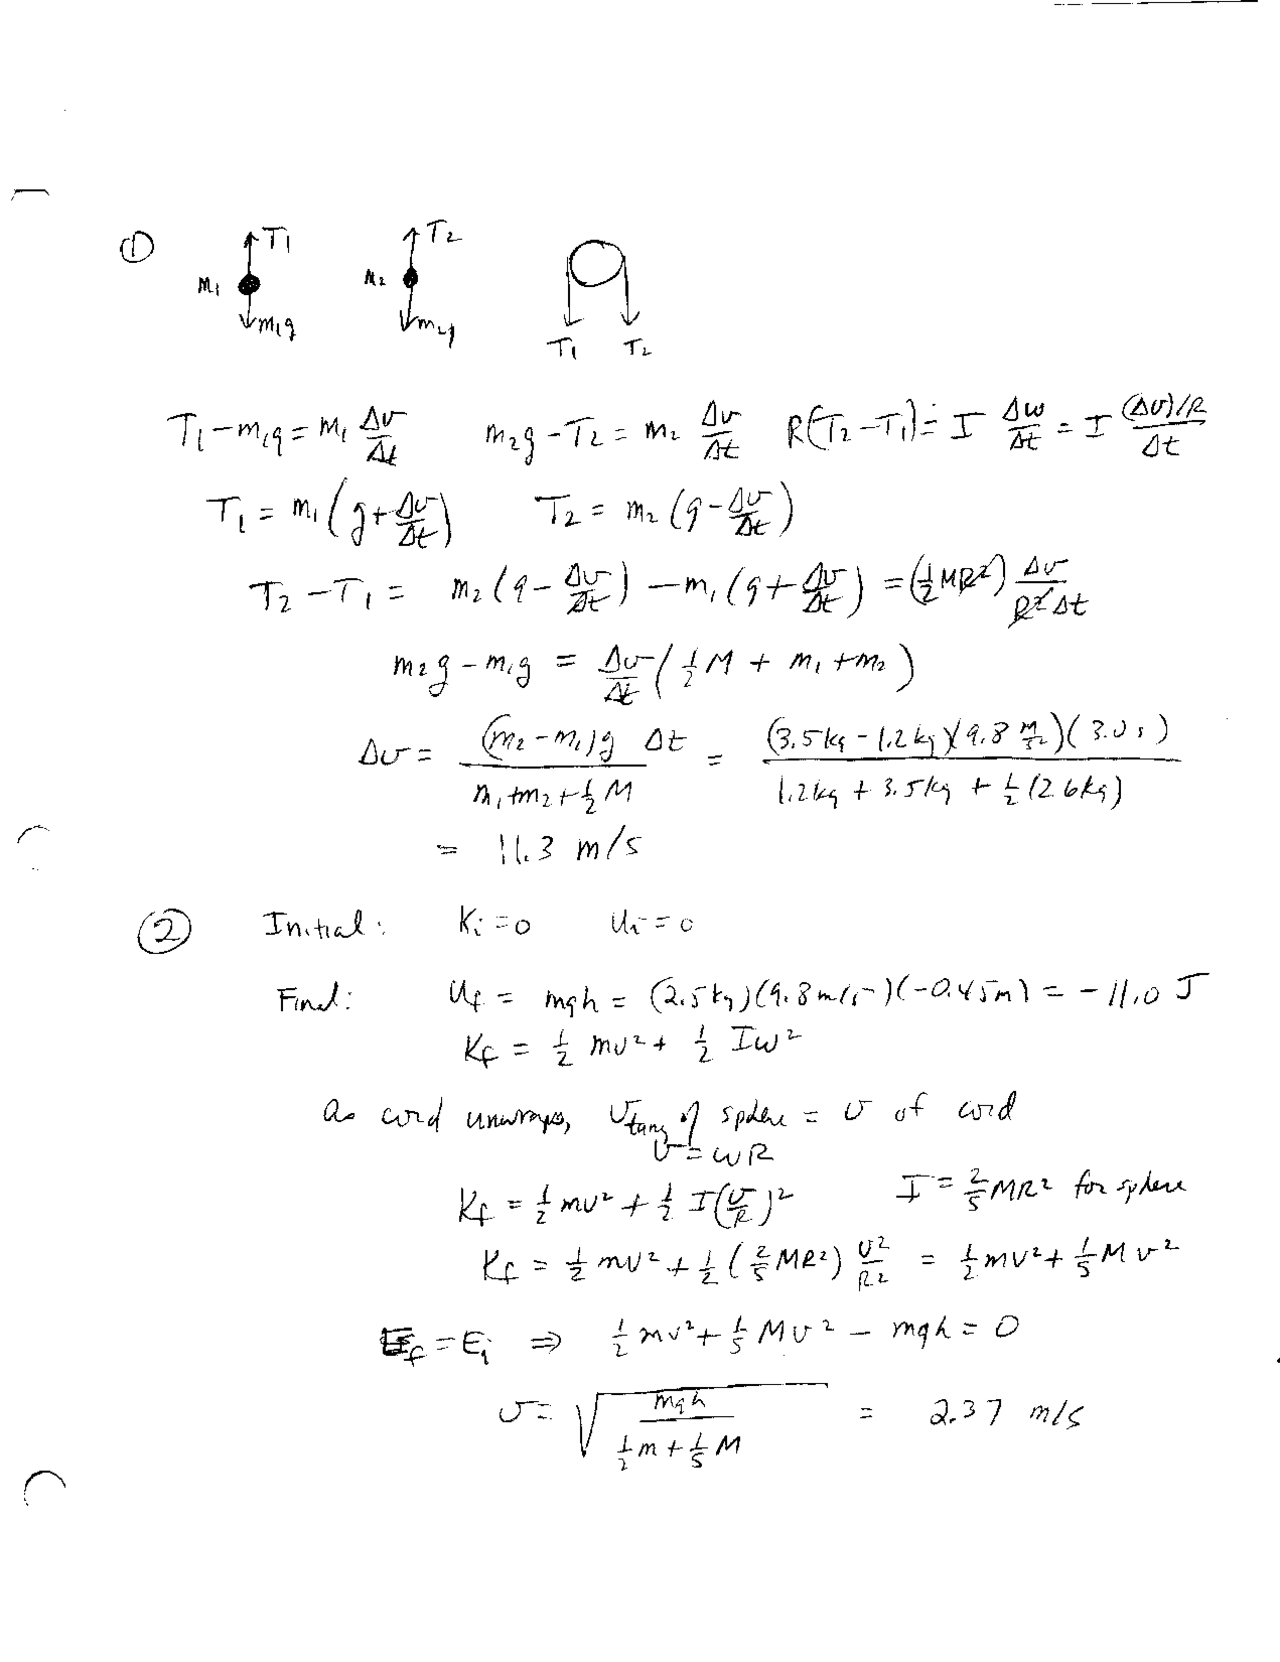 ①
T₁ T₂
M₁ M₂
m₁g m₂g T₁ T₂
T₁ - m₁g = m₁ Δv/Δt m₂g - T₂ = m₂ Δv/Δt R(T₂ - T₁) = I Δω/Δt = I (Δv)/R / Δt
T₁ = m₁(g + Δv/Δt) T₂ = m₂(g - Δv/Δt)
T₂ - T₁ = m₂(g - Δv/Δt) - m₁(g + Δv/Δt) = (½MR²) Δv / R²Δt
m₂g - m₁g = Δv/Δt (½M + m₁ + m₂)
Δv = (m₂ - m₁)g Δt / m₁ + m₂ + ½M = (3.5kg - 1.2kg)(9.8 m/s²)(3.0s) / 1.2kg + 3.5kg + ½(2.6kg)
= 11.3 m/s
② Initial: Kᵢ = 0 Uᵢ = 0
Final: U_f = mgh = (2.5kg)(9.8m/s²)(-0.45m) = -11.0 J
K_f = ½ mv² + ½ Iω²
As cord unwraps, v_tang of sphere = v of cord
v = ωR
K_f = ½mv² + ½ I(v/R)² I = ⅖MR² for sphere
K_f = ½mv² + ½(⅖MR²) v²/R² = ½mv² + ⅕Mv²
E_f = Eᵢ ⇒ ½mv² + ⅕Mv² - mgh = 0
v = √(mgh / ½m + ⅕M) = 2.37 m/s